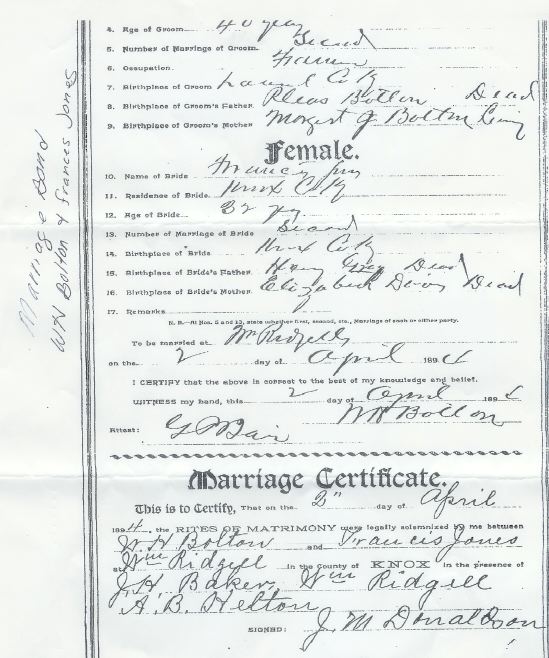 4. Age of Groom 40 years
5. Number of Marriage of Groom. Second
6. Occupation. Farmer
7. Birthplace of Groom Laurel Co Ky
8. Birthplace of Groom's Father. Pleas Bolton Dead
9. Birthplace of Groom's Mother J Bolton living
Female.
10. Name of Bride
11. Residence of Bride. Knox Co Ky
12. Age of Bride 32 yrs
13. Number of Marriage of Bride Second
14. Birthplace of Bride Knox Co Ky
15. Birthplace of Bride's Father. Dead
16. Birthplace of Bride's Mother. Elizabeth Dead
17. Remarks
N. B.—At Nos. 5 and 13, state whether first, second, etc., Marriage of each or either party.
To be married at Wm Ridgells
on the 2 day of April 1894
I CERTIFY that the above is correct to the best of my knowledge and belief.
WITNESS my hand, this 2 day of April 1894
WH Bolton
Attest:
Marriage Certificate.
This is to Certify, That on the 2" day of April
1894. the RITES OF MATRIMONY were legally solemnized by me between
W H Bolton and Francis Jones
at Wm Ridgell in the County of KNOX in the presence of
J. H. Baker, Wm Ridgell
A. B. Helton
SIGNED: J. M Donaldson
Marriage Bond
WH Bolton & Frances Jones